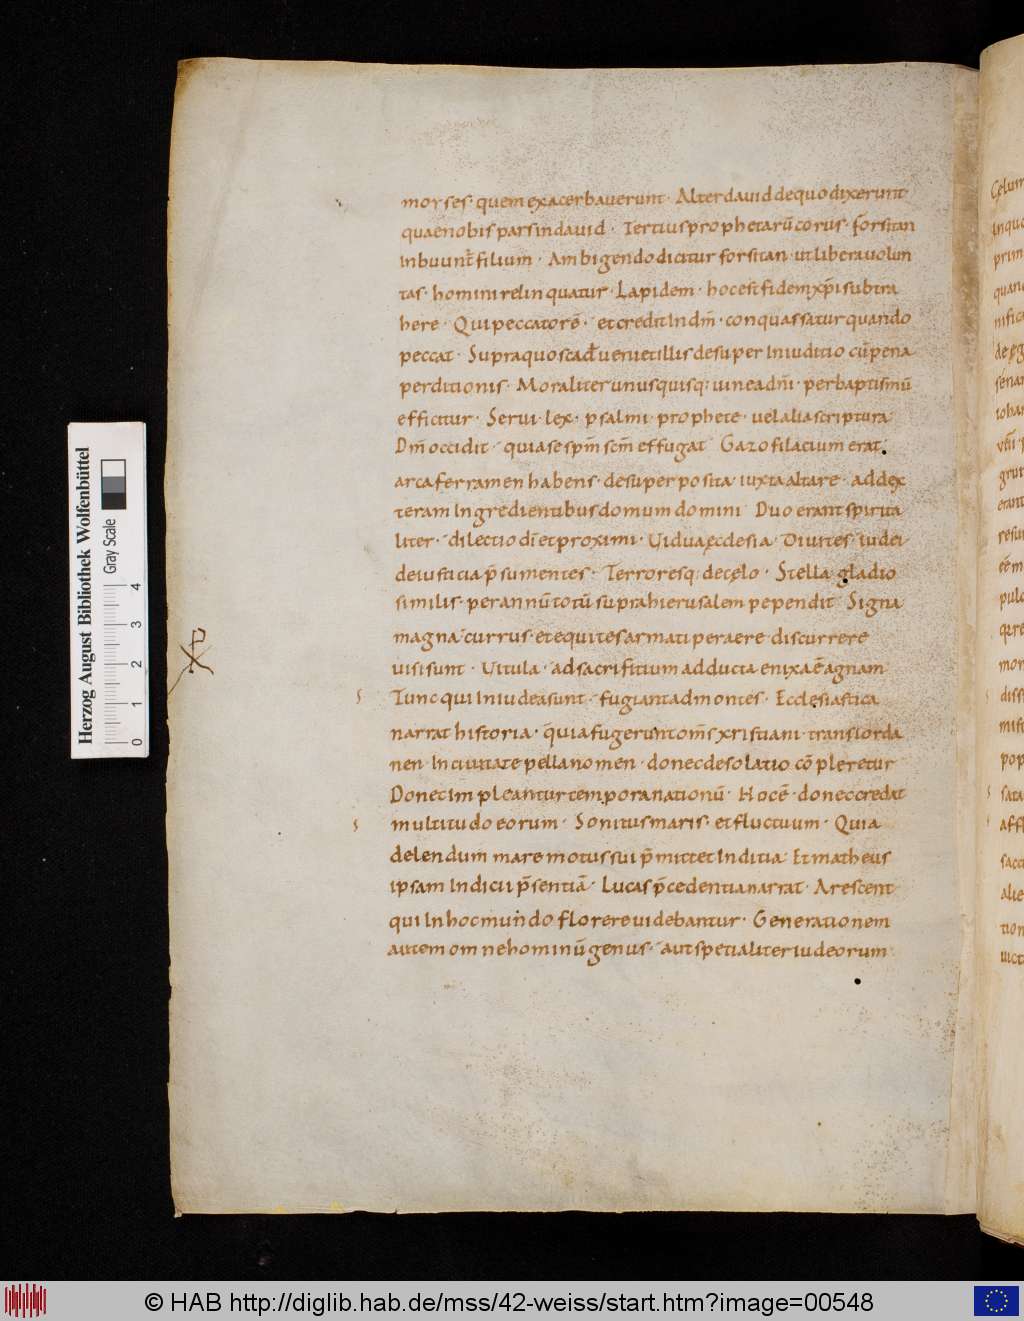 morses· quem exacerbauerunt· Alter dauid de quo dixerunt·
quae nobis pars in dauid· Tertius prophetarū corus· forsitan
Inbuunt filium· Ambigendo dicitur forsitan· ut libera uolun
tas· homini relinquatur· Lapidem· hoc est fidem xp̄i subtra
here· Qui peccatorē· et credit In dm̄· conquassatur quando
peccat· Supra quos cad̄ uenietillis desuper Iniuditio cū pena
perditionis· Moraliter unusquisq; uinea dn̄i· per baptismū
efficitur· Serui· lex· psalmi· prophete· uel alia scriptura
Dm̄ occidit· quia se spm̄ scm̄ effugat· Gazofilatium erat·
arca ferramen habens· desuper posita iuxta altare· ad dex
teram Ingredientibus domum domini· Duo erant spirita
liter· dilectio dī et proximi· Uidua ęcclesia· Diuites iudei
de iusticia p̄sumentes· Terroresq; de cęlo· Stella gladio
similis· per annū totū supra hierusalem pependit· Signa
magna currus· et equites armati per aere discurrere
uisi sunt· Uitula· ad sacrifitium adducta enixa ē agnam
Tunc qui In iudea sunt· fugiant ad montes· Ecclesiastica
narrat historia· quia fugerunt om̄s xristiani· trans Iorda
nen· In ciuitate pella nomen· donec desolatio cōpleretur
Donec impleantur tempora nationū· Hoc ē· donec credat
multitudo eorum· Sonitus maris· et fluctuum· Quia
delendum mare motus sui p̄mittet Inditia· Et matheus
ipsam Indicii p̄sentiā· Lucas p̄cedentia narrat· Arescent
qui In hoc mundo florere uidebantur· Generationem
autem omne hominū genus· aut spetialiter iudeorum·
Herzog August Bibliothek Wolfenbüttel
Gray Scale
0 1 2 3 4
© HAB http://diglib.hab.de/mss/42-weiss/start.htm?image=00548